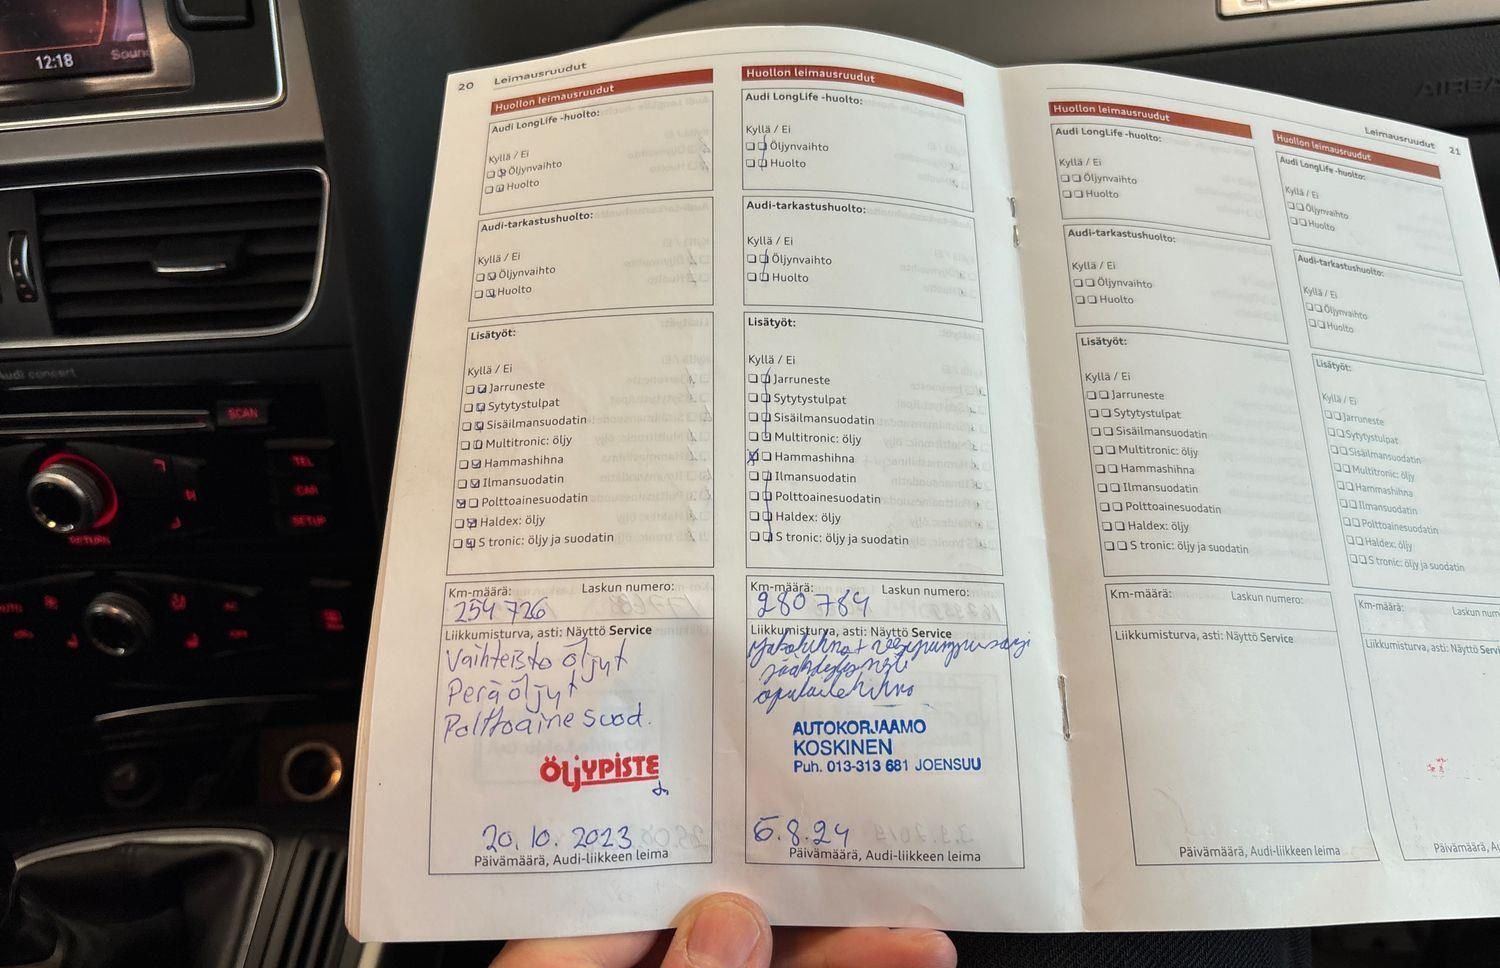 12:18
Audi concert
SCAN
TEL
CAR
SETUP
RETURN
AIRBAG
20 Leimausruudut
Huollon leimausruudut
Audi LongLife -huolto:
Kyllä / Ei
Öljynvaihto
Huolto
Audi-tarkastushuolto:
Kyllä / Ei
Öljynvaihto
Huolto
Lisätyöt:
Kyllä / Ei
Jarruneste
Sytytystulpat
Sisäilmansuodatin
Multitronic: öljy
Hammashihna
Ilmansuodatin
Polttoainesuodatin
Haldex: öljy
S tronic: öljy ja suodatin
Km-määrä: Laskun numero:
254 726
Liikkumisturva, asti: Näyttö Service
Vaihteisto öljyt
Perä öljyt
Polttoaine suod.
ÖljYPISTE
20.10.2023
Päivämäärä, Audi-liikkeen leima
Huollon leimausruudut
Audi LongLife -huolto:
Kyllä / Ei
Öljynvaihto
Huolto
Audi-tarkastushuolto:
Kyllä / Ei
Öljynvaihto
Huolto
Lisätyöt:
Kyllä / Ei
Jarruneste
Sytytystulpat
Sisäilmansuodatin
Multitronic: öljy
Hammashihna
Ilmansuodatin
Polttoainesuodatin
Haldex: öljy
S tronic: öljy ja suodatin
Km-määrä: Laskun numero:
280 784
Liikkumisturva, asti: Näyttö Service
Jakohihna + vesipumppusarja
jäähdytysneste
apulaitehihna
AUTOKORJAAMO
KOSKINEN
Puh. 013-313 681 JOENSUU
6.8.24
Päivämäärä, Audi-liikkeen leima
Huollon leimausruudut
Audi LongLife -huolto:
Kyllä / Ei
Öljynvaihto
Huolto
Audi-tarkastushuolto:
Kyllä / Ei
Öljynvaihto
Huolto
Lisätyöt:
Kyllä / Ei
Jarruneste
Sytytystulpat
Sisäilmansuodatin
Multitronic: öljy
Hammashihna
Ilmansuodatin
Polttoainesuodatin
Haldex: öljy
S tronic: öljy ja suodatin
Km-määrä: Laskun numero:
Liikkumisturva, asti: Näyttö Service
Päivämäärä, Audi-liikkeen leima
Leimausruudut 21
Huollon leimausruudut
Audi LongLife -huolto:
Kyllä / Ei
Öljynvaihto
Huolto
Audi-tarkastushuolto:
Kyllä / Ei
Öljynvaihto
Huolto
Lisätyöt:
Kyllä / Ei
Jarruneste
Sytytystulpat
Sisäilmansuodatin
Multitronic: öljy
Hammashihna
Ilmansuodatin
Polttoainesuodatin
Haldex: öljy
S tronic: öljy ja suodatin
Km-määrä: Laskun
Liikkumisturva, asti: Näyttö
Päivämäärä,